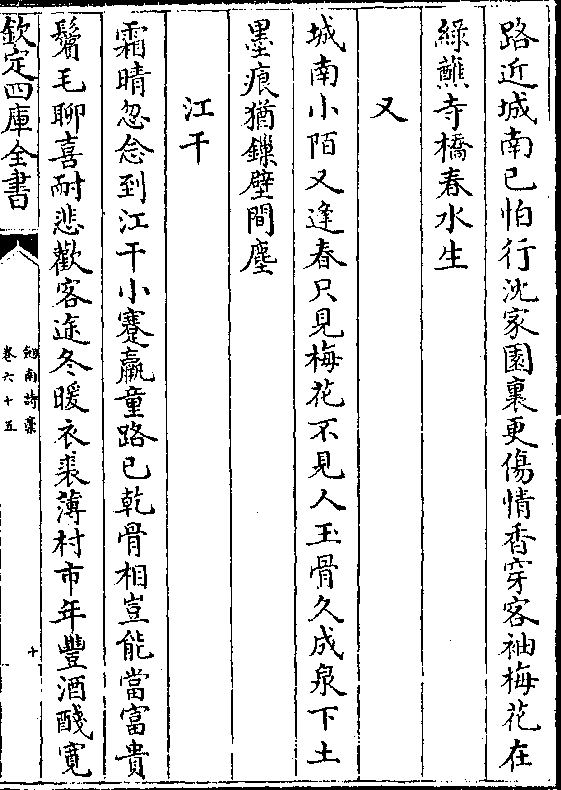 路近城南已怕行沈家園裏更傷情香穿客袖梅花在
綠蘸寺橋春水生
又
城南小陌又逢春只見梅花不見人玉骨久成泉下土
墨痕猶鏁壁間塵
江干
霜晴忽念到江干小蹇羸童路已乾骨相豈能當富貴
鬢毛聊喜耐悲歡客途冬暖衣裘薄村市年豐酒醆寬
欽定四庫全書
劔南詩藁
卷六十五
十